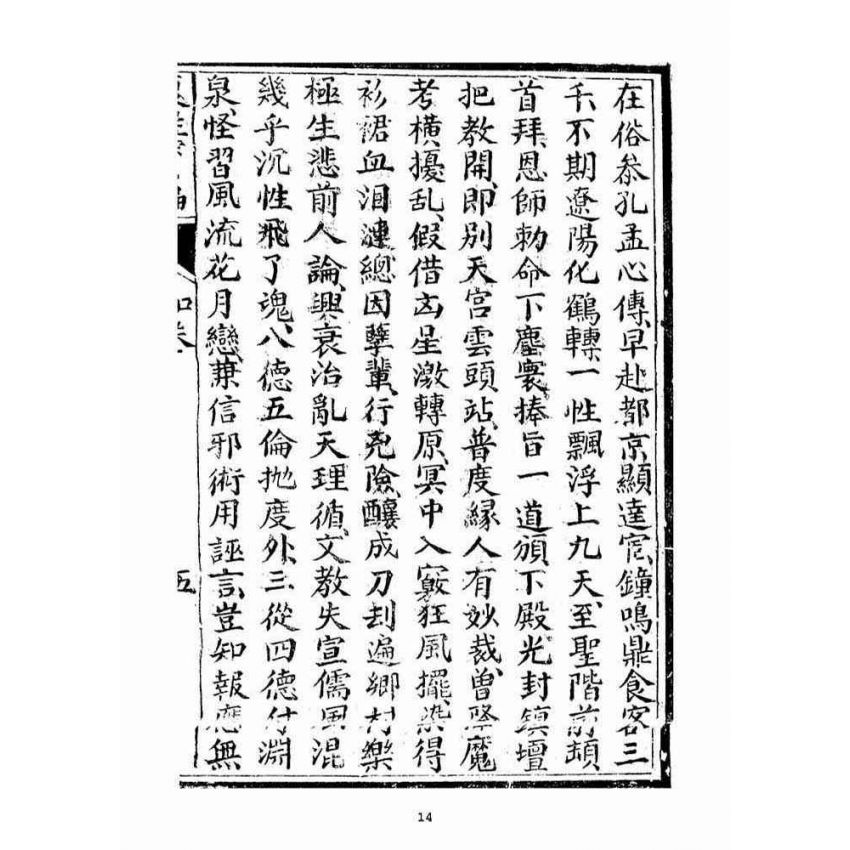 在俗叅孔孟心傳、早赴都京顯達宦、鐘鳴鼎食客三
千、不期遼陽化鶴轉、一性飄浮上九天、至聖階前頡
首拜、恩師勅命下塵寰、捧旨一道頒下殿、光封鎮壇
把教開、即別天宮雲頭站、普度緣人有妙裁、曾降魔
考橫擾乱、假借凶星激轉原、冥中入竅狂風擺、染得
衫裙血泪漣、總因孽輩行兇險、釀成刀刦遍鄉村、樂
極生悲前人論、興衰治亂天理循、文教失宣儒風混
幾乎沉性飛了魂、八德五倫抛度外、三從四德付淵
泉、怪習風流花月戀、兼信邪術用誣言、豈知報應無
五
14